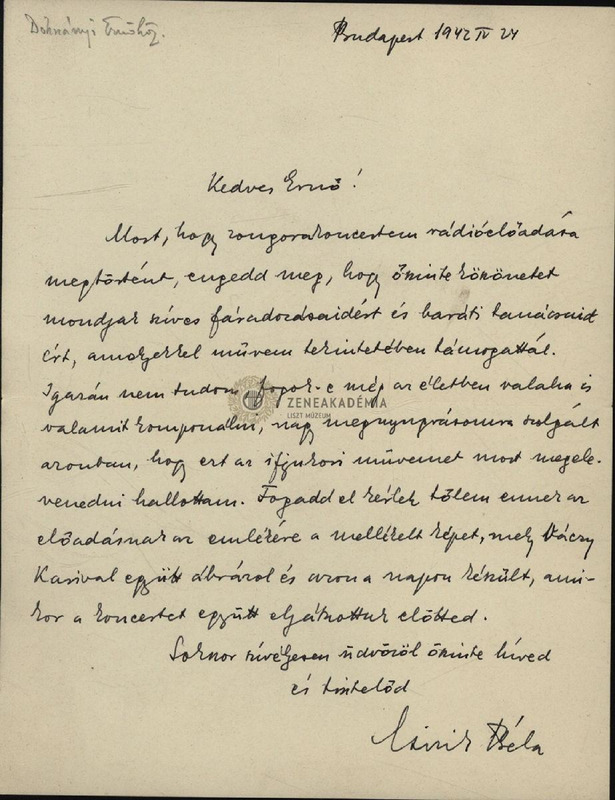 Dohnányi Ernőhöz.
Budapest 1942 IV 24
Kedves Ernő!
Most, hogy zongorakoncertem rádióelőadása
megtörtént, engedd meg, hogy őszinte köszönetet
mondjak szíves fáradozásaidért és baráti tanácsaid
ért, amelyekkel művem tekintetében támogattál.
Igazán nem tudom, fogok-e még az életben valaha is
valamit komponálni, nagy megnyugvásomra szolgált
azonban, hogy ezt az ifjukori művemet most megele-
venedni hallottam. Fogadd el kérlek tőlem ennek az
előadásnak az emlékére a mellékelt képet, mely Váczy
Karival együtt ábrázol és azon a napon készült, ami-
kor a koncertet együtt eljátszottuk előtted.
Sokszor szívélyesen üdvözöl őszinte híved
és tisztelőd
Béla
ZENEAKADÉMIA
LISZT MÚZEUM